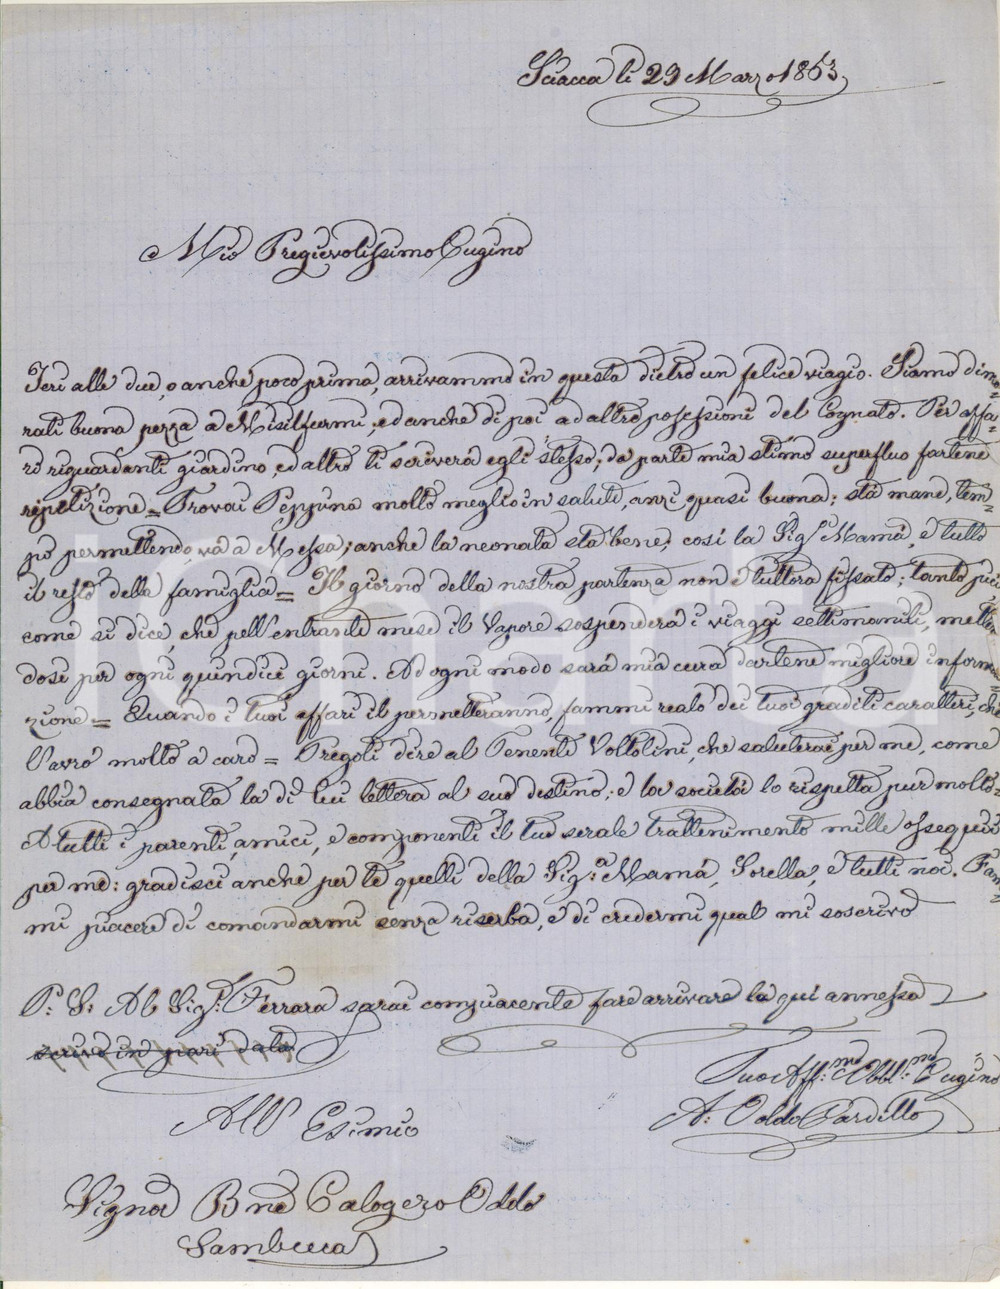 Sciacca li 29 Marzo 1863
Mio Pregievolissimo Cugino
Ieri alle due, o anche poco prima, arrivammo in questa dietro un felice viagio. Siamo dimo=
rati buona pezza a Misilfurmi, ed anche di poi ad altre possessioni del Cognato. Per affa=
ri riguardanti giardino, ed altro ti scriverà egli stesso; da parte mia stimo superfluo fartene
ripetizione = Trovai Peppina molto meglio in salute, anzi quasi buona; sta mane, tem=
po permettendo, và a Messa; anche la neonata sta bene, così la Sig.ª Mamà, e tutto
il resto della famiglia = Il giorno della nostra partenza non è tuttora fissato; tanto più
come si dice, che nell'entrante mese il Vapore sospenderà i viaggi settimanili, metten
dosi per ogni quindici giorni. Ad ogni modo sarà mia cura dartene migliore informa=
zione = Quando i tuoi affari il permetteranno, fammi realo dei tuoi graditi caratteri, che
l'avrò molto a caro = Pregoti dire al Tenente Voltolini, che saluterai per me, come
abbia consegnata la di lui lettera al suo destino; e la società lo rispetta pur molto=
A tutti i parenti, amici, e componenti il tuo serale trattenimento mille ossequii
per me: gradisci anche per te quelli della Sig.ª Mamà, Sorella, e tutti noi. Fam=
mi piacere di comandarmi senza riserba, e di credermi qual mi soscrivo
P: S: Al Sig.r Ferrara sarai compiacente fare arrivare la qui annessa
scritto in pari data
Tuo Aff.mo Obbl.mo Cugino
A: Oddo Pardillo
All' Esimio
Signor B.ne Calogero Oddo
Sambuca
iCharta